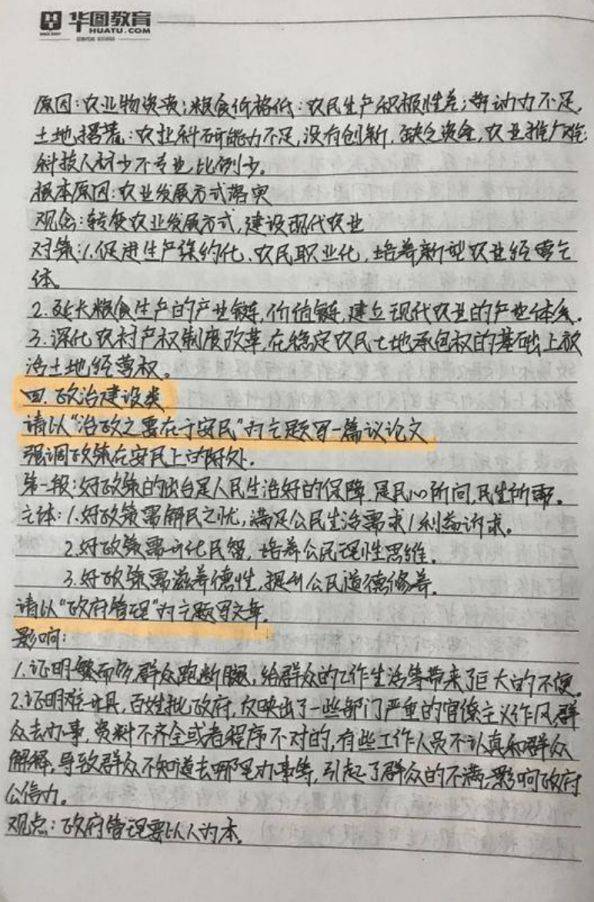 华图教育
HUATU.COM
原因:农业物资贵;粮食价格低:农民生产积极性差;劳动力不足,
土地撂荒:农业科研能力不足,没有创新,缺乏资金,农业推广难:
科技人材少不专业,比例少。
根本原因:农业发展方式落实
观念:转变农业发展方式,建设现代农业
对策:1.促进生产集约化、农民职业化,培养新型农业经营主
体。
2.延长粮食生产的产业链,价值链,建立现代农业的产业体系。
3.深化农村产权制度改革,在稳定农民土地承包权的基础上放
活土地经营权。
四.政治建设类
请以“治政之要在于安民”为主题写一篇议论文
强调政策在安民上的好处。
第一段:好政策的出台是人民生活好的保障,是民心所向,民生所需。
主体:1.好政策需解民之忧,满足公民生活需求/利益诉求。
2.好政策需开化民智,培养公民理性思维。
3.好政策需滋养德性,提升公民道德修养。
请以“政府管理”为主题写文章.
影响:
1.证明繁而多,群众跑断腿,给群众的工作生活等带来了巨大的不便。
2.证明难开具,百姓批政府,反映出了一些部门严重的官僚主义作风,群
众去办事,资料不齐全或者程序不对的,有些工作人员不认真和群众
解释,导致群众不知道去哪里办事等,引起了群众的不满,影响政府
公信力。
观点:政府管理要以人为本.